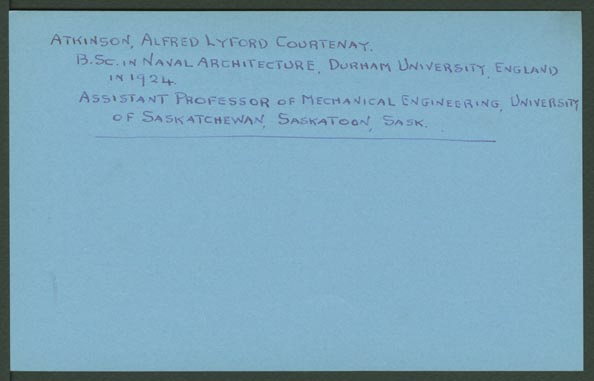 ATKINSON, ALFRED LYFORD COURTENAY.
B.SC. IN NAVAL ARCHITECTURE, DURHAM UNIVERSITY, ENGLAND
IN 1924.
ASSISTANT PROFESSOR OF MECHANICAL ENGINEERING, UNIVERSITY
OF SASKATCHEWAN, SASKATOON, SASK.